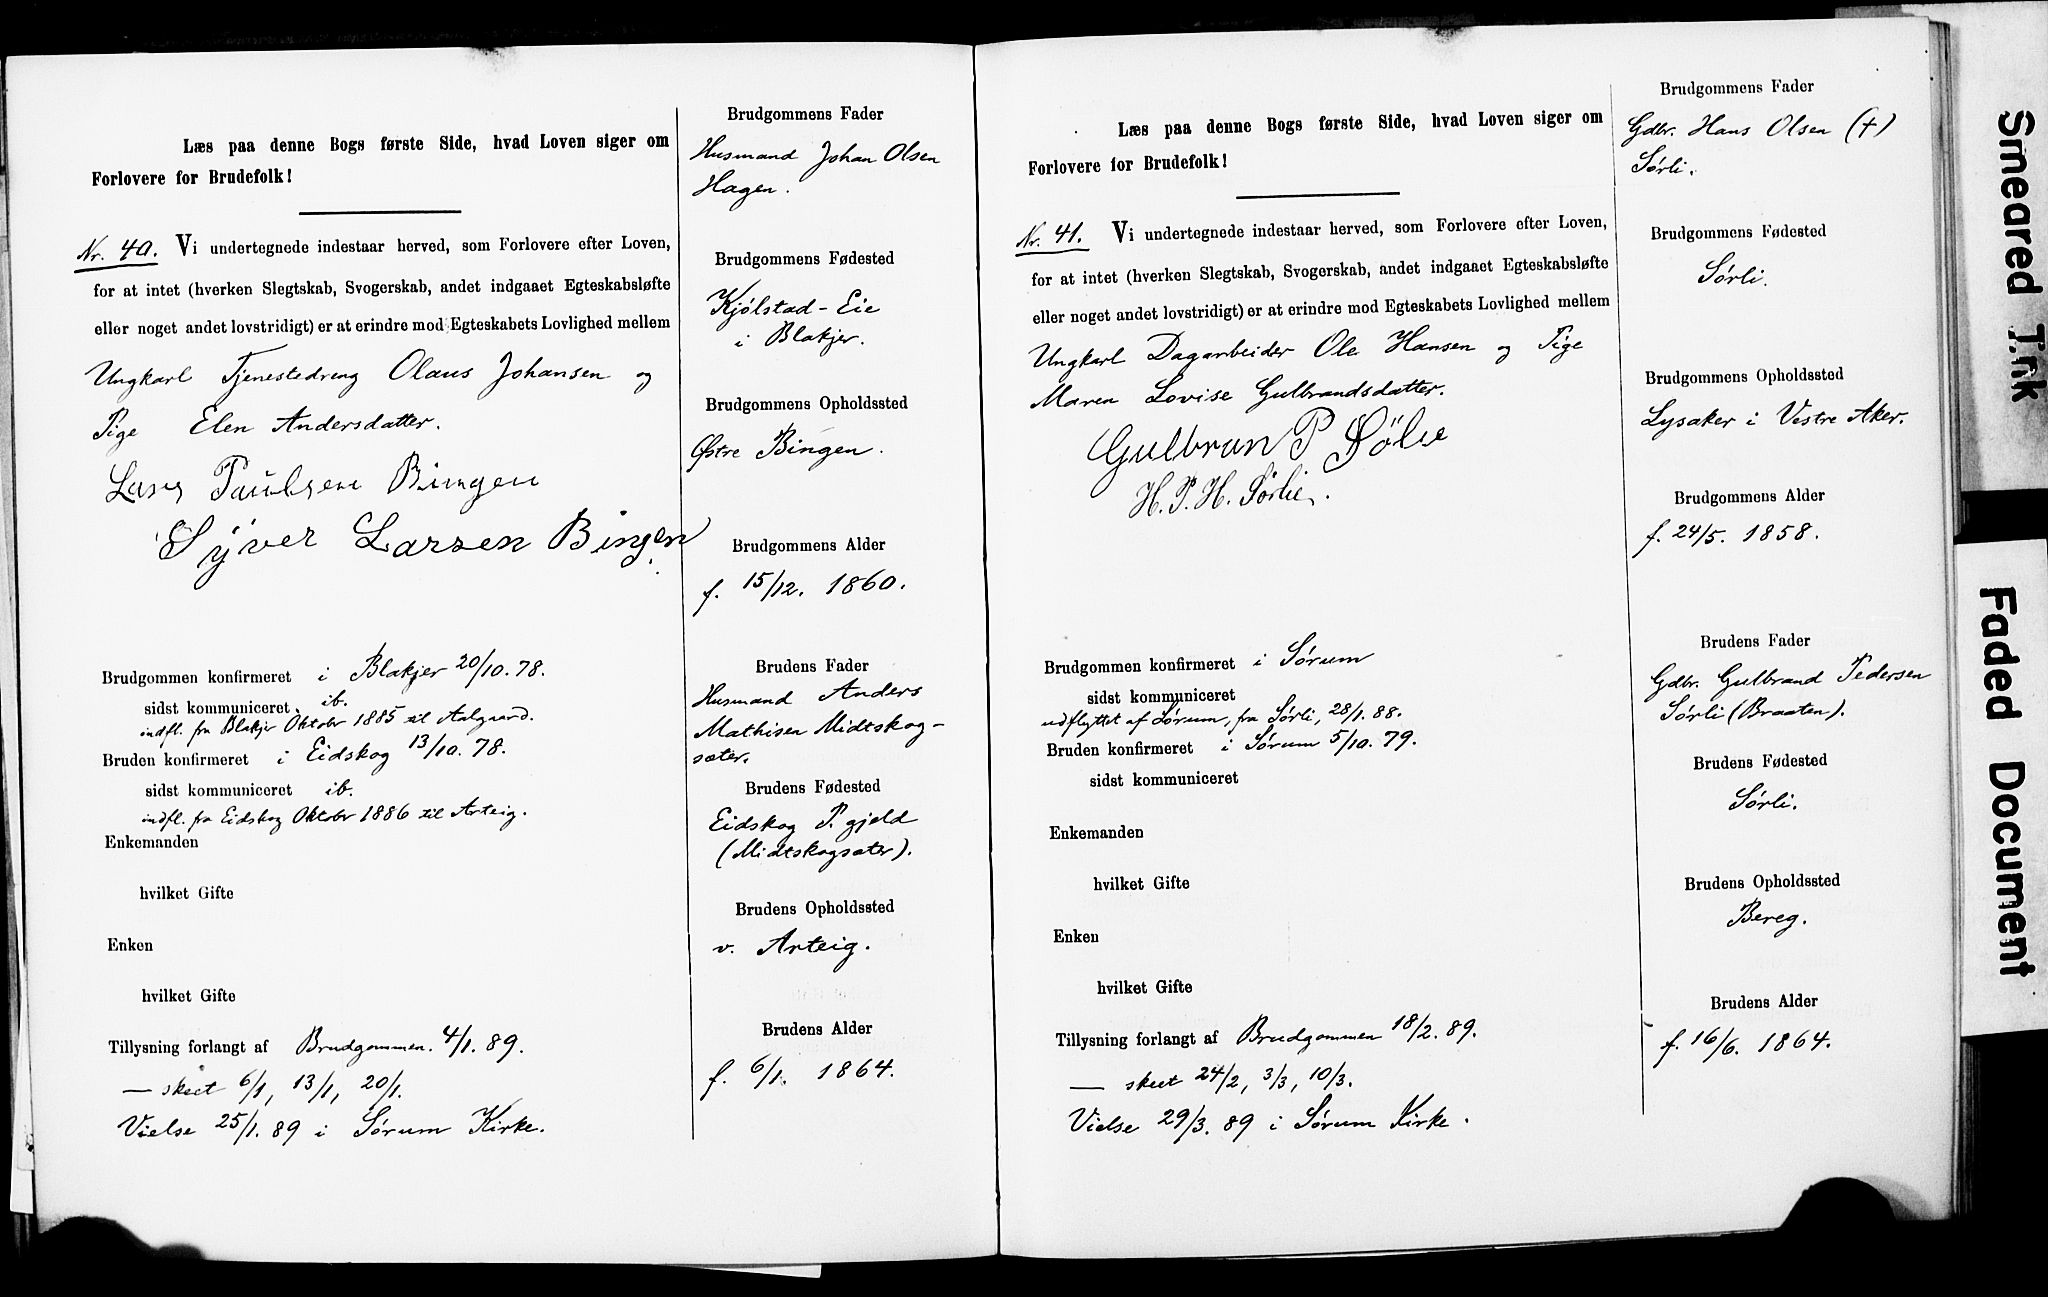 Læs paa denne Bogs første Side, hvad Loven siger om
Forlovere for Brudefolk!
Nr. 40. Vi undertegnede indestaar herved, som Forlovere efter Loven,
for at intet (hverken Slegtskab, Svogerskab, andet indgaaet Egteskabsløfte
eller noget andet lovstridigt) er at erindre mod Egteskabets Lovlighed mellem
Ungkarl Tjenestedreng Olaus Johansen og
Pige Elen Andersdatter.
Lars Paulsen Bingen
Syver Larsen Bingen.
Brudgommen konfirmeret i Blakjer 20/10. 78.
sidst kommuniceret ib.
indfl. fra Blakjer Oktobr 1885 til Aalgaard.
Bruden konfirmeret i Eidskog 13/10. 78.
sidst kommuniceret ib.
indfl. fra Eidskog Oktobr 1886 til Arteig.
Enkemanden
hvilket Gifte
Enken
hvilket Gifte
Tillysning forlangt af Brudgommen. 4/1. 89.
— skeet 6/1, 13/1, 20/1.
Vielse 25/1. 89 i Sørum Kirke.
Brudgommens Fader
Husmand Johan Olsen
Hagen.
Brudgommens Fødested
Kjølstad-Eie
i Blakjer.
Brudgommens Opholdssted
Østre Bingen.
Brudgommens Alder
f. 15/12. 1860.
Brudens Fader
Husmand Anders
Mathisen Midtskog-
sæter.
Brudens Fødested
Eidskog P. gjeld
(Midtskogsæter).
Brudens Opholdssted
v. Arteig.
Brudens Alder
f. 6/1. 1864.
Læs paa denne Bogs første Side, hvad Loven siger om
Forlovere for Brudefolk!
Nr. 41. Vi undertegnede indestaar herved, som Forlovere efter Loven,
for at intet (hverken Slegtskab, Svogerskab, andet indgaaet Egteskabsløfte
eller noget andet lovstridigt) er at erindre mod Egteskabets Lovlighed mellem
Ungkarl Dagarbeider Ole Hansen og Pige
Maren Lovise Gulbrandsdatter.
Gulbran P Sølie
H. P. H. Sørlie.
Brudgommen konfirmeret i Sørum
sidst kommuniceret
udflyttet af Sørum, fra Sørli, 28/1. 88.
Bruden konfirmeret i Sørum 5/10. 79.
sidst kommuniceret
Enkemanden
hvilket Gifte
Enken
hvilket Gifte
Tillysning forlangt af Brudgommen 18/2. 89.
— skeet 24/2, 3/3, 10/3.
Vielse 29/3. 89 i Sørum Kirke.
Brudgommens Fader
Gdbr. Hans Olsen (+)
Sørli.
Brudgommens Fødested
Sørli.
Brudgommens Opholdssted
Lysaker i Vestre Aker.
Brudgommens Alder
f. 24/5. 1858.
Brudens Fader
Gdbr. Gulbrand Pedersen
Sørli (Braaten).
Brudens Fødested
Sørli.
Brudens Opholdssted
Bereg.
Brudens Alder
f. 16/6. 1864.
Smeared Ink
Faded Document